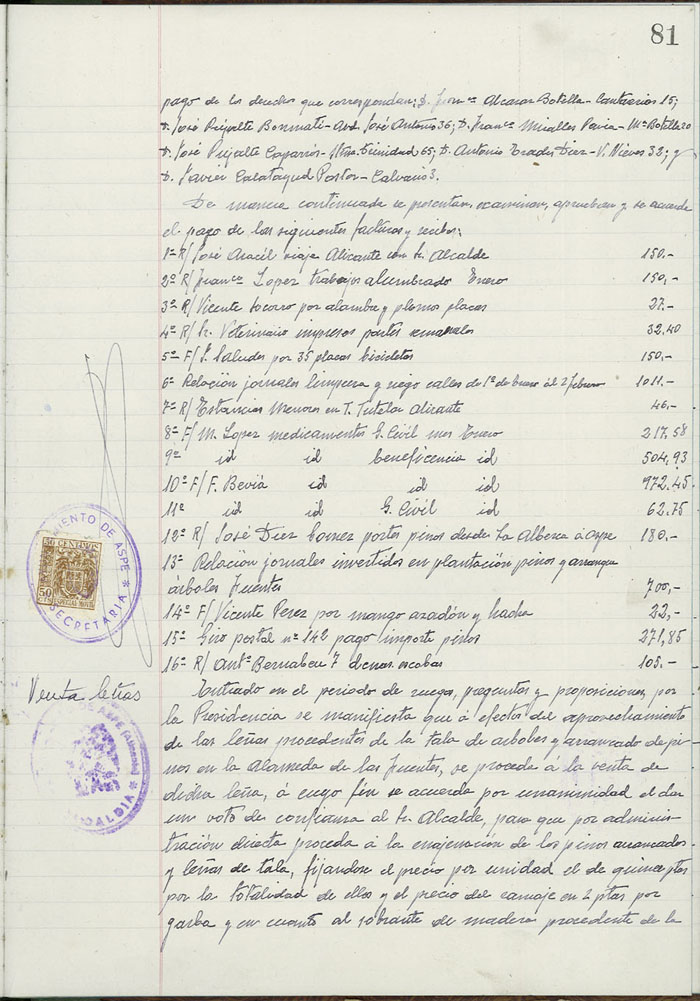 81
pago de los derechos que correspondan; D. Franco Alcaraz Botella - Cantereria 15;
D. José Puyalte Bonmati - Avd. José Antonio 36; D. Franco Miralles - Mª Botella 20
D. José Puyalte Caparrós - Stma. Trinidad 65; D. Antonio Prades Diez - V. Nieves 32; y
D. Javier Calatayud Pastor - Calvario 3.
De manera continuada se presentan, examinan, aprueban y se acuerda
el pago de las siguientes facturas y recibos:
1º R/ José Aracil viaje Alicante con Sr. Alcalde 150.-
2º R/ Franco Lopez trabajos alumbrado Enero 150,-
3º R/ Vicente Socarro por alambre y plomos placas 27.-
4º R/ Sr. Veterinario impresos partes semanales 32,40
5º F/ S. Saludes por 35 placas bicicletas 150,-
6º Relación jornales limpieza y riego calles de 1º de Enero al 2 febrero 1011.-
7º R/ Estancias Menores en T. Tutelar Alicante 46,-
8º F/ M. Lopez medicamentos G. Civil mes Enero 217,58
9º id id beneficencia id 504,93
10º F/ F. Beviá id id id 972.45
11º id id G. Civil id 62.75
12º R/ José Diez portes pinos desde La Alberca á Aspe 180.-
13º Relación jornales invertidos en plantación pinos y arranque
árboles Fuentes 700,-
14º F/ Vicente Perez por mango azadón y hacha 22,-
15º Giro postal nº 142 pago importe pinos 271,85
16º R/ Antº Bernabeu 7 docenas escobas 105.-
Venta leñas
Entrado en el periodo de ruegos, preguntas y proposiciones, por
la Presidencia se manifiesta que á efectos del aprovechamiento
de las leñas procedentes de la tala de arboles y arrancado de pi-
nos en la Alameda de las Fuentes, se proceda á la venta de
dicha leña, á cuyo fin se acuerda por unanimidad el dar
un voto de confianza al Sr. Alcalde, para que por adminis-
tración directa proceda á la enajenación de los pinos arrancados
y leñas de tala, fijandose el precio por unidad el de quince ptas
por la totalidad de ellos y el precio del ramaje en 2 ptas por
garba y en cuanto al sobrante de madera procedente de la
AYUNTAMIENTO DE ASPE
SECRETARIA
50 CENTIMOS
50 CTS
ESPECIAL MOVIL
DE ASPE (Alicante)
ALCALDIA